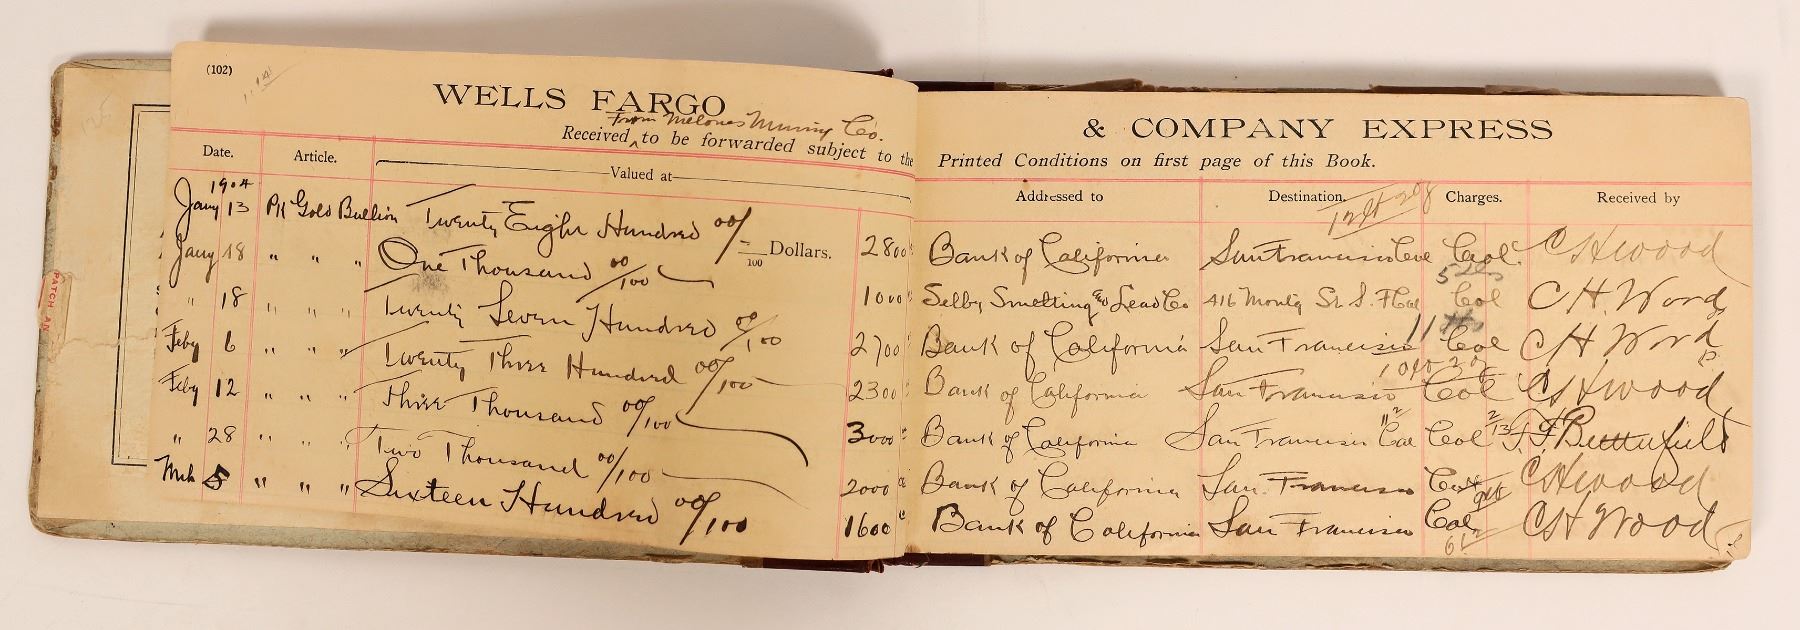 (102)
WELLS FARGO & COMPANY EXPRESS
From Melones Mining Co.
Received ^ to be forwarded subject to the Printed Conditions on first page of this Book.
Date. Article. Valued at Addressed to Destination. Charges. Received by
1904
Jany 13 PK Gold Bullion Twenty Eight Hundred 00/ — /100 Dollars. 2800 Bank of California San Francisco Col C H Wood
Jany 18 " " " One Thousand 00/100 1000 Selby Smelting & Lead Co 416 Montg St. S. F Cal Col C H. Wood
" 18 " " " Twenty Seven Hundred 00/100 2700 Bank of California San Francisco Col C H Wood
Feby 6 " " " Twenty Three Hundred 00/100 2300 Bank of California San Francisco Col C H Wood
Feby 12 " " " Three Thousand 00/100 3000 Bank of California San Francisco Cal Col F. F. Butterfield
" 28 " " " Two Thousand 00/100 2000 Bank of California San Francisco Col C H Wood
Mch 5 " " " Sixteen Hundred 00/100 1600 Bank of California San Francisco Col C H Wood
PATCH AN